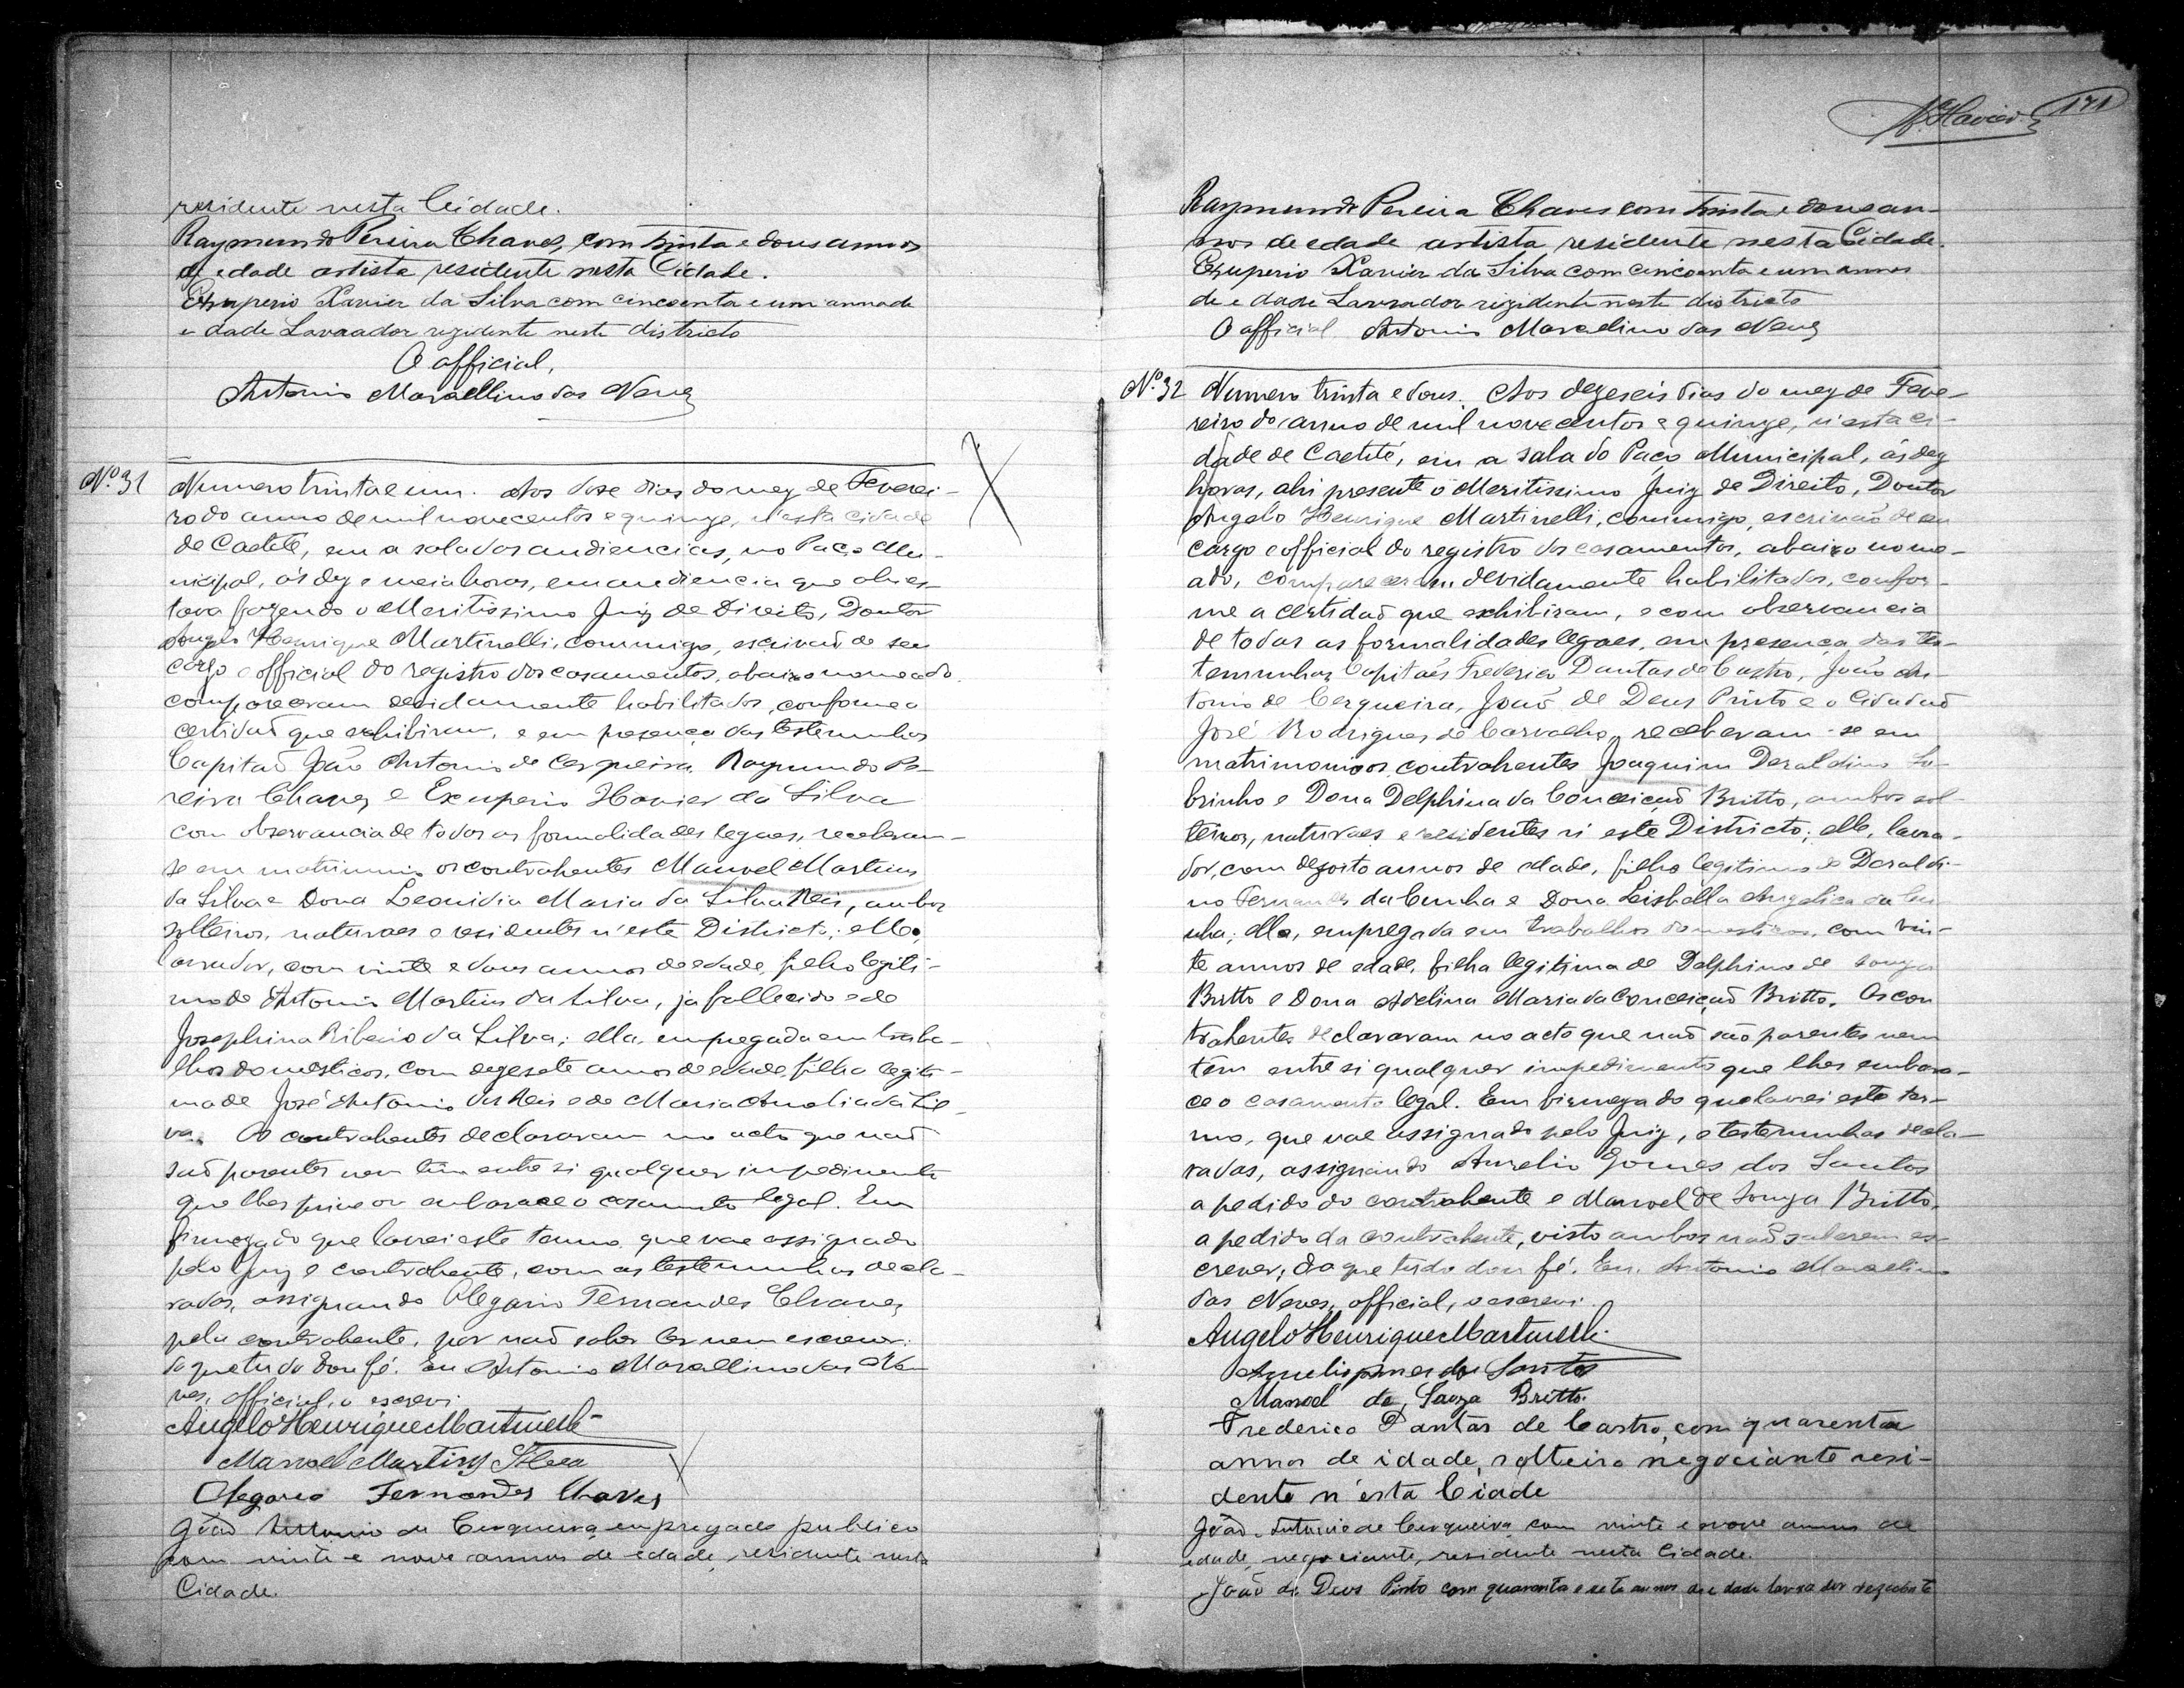 residente nesta Cidade.
Raymundo Pereira Chaves, com trinta e dous annos
de edade artista residente nesta Cidade.
Exuperio Xavier da Silva com cincoenta e um anno de
e dade Lavrador rezidente neste districto
O official,
Antonio Marcellino das Neves
Nº 31 Numero trinta e um. Aos doze dias do mez de Feverei-
ro do anno de mil novecentos e quinze, n'esta cidade
de Caetité, em a sala das audiencias, no Paço Mu-
nicipal, ás dez e meia horas, em audiencia que ahi es-
tava fazendo o Meritissimo Juiz de Direito, Doutor
Angelo Henrique Martinelli, commigo, escrivaõ de seu
cargo e official do registro dos casamentos, abaixo nomeado,
compareceram devidamente habilitados, conforme a
certidaõ que exhibiram, e em presença das testemunhas
Capitaõ João Antonio de Cerqueira, Raymundo Pe-
reira Chaves e Exuperio Xavier da Silva
com observancia de todas as formalidades legaes, receberam-
se em matrimonio os contrahentes Manoel Martins
da Silva e Dona Leonidia Maria da Silva Reis, ambos
solteiros, naturaes e residentes n'este Districto; elle,
lavrador, com vinte e dous annos de edade, filho legiti-
mo de Antonio Martins da Silva, ja fallecido e de
Josephina Ribeiro da Silva; ella, empregada em traba-
lhos domesticos, com dezesete annos de edade filha legiti-
ma de José Antonio dos Reis e de Maria Amalia da Sil-
va. Os contrahentes declararam no acto que naõ
saõ parentes nem têm entre si qualquer impedimento
que lhes prive ou embarace o casamento legal. Em
firmeza do que lavrei este termo que vae assignado
pelo Juiz e contrahente, com as testemunhas decla-
radas, assignando Olegario Fernandes Chaves,
pela contrahente, por naõ saber ler nem escrever:
do que tudo dou fé. Eu Antonio Marcellino das Ne-
ves, official, o escrevi.
Angelo Henrique Martinelli
Manoel Martins Silva
Olegario Fernandes Chaves
João Antonio de Cerqueira empregado publico
com vinte e nove annos de edade, residente nesta
Cidade.
171
Raymundo Pereira Chaves com trinta e dous an-
nos de edade artista residente nesta Cidade.
Exuperio Xavier da Silva com cincoenta e um annos
de e dade Lavrador rezidente neste districto
O official Antonio Marcelino das Neves
Nº 32 Numero trinta e dous. Aos dezeseis dias do mez de Feve-
reiro do anno de mil novecentos e quinze, n'esta ci-
dade de Caetité, em a sala do Paço Municipal, ás dez
horas, ahi presente o Meritissimo Juiz de Direito, Doutor
Angelo Henrique Martinelli, commigo, escrivaõ de seu
cargo e official do registro dos casamentos, abaixo nome-
ado, compareceram devidamente habilitados, confor-
me a certidaõ que exhibiram, e com observancia
de todas as formalidades legaes, em presença das tes-
temunhas Capitães Frederico Dantas de Castro, João An-
tonio de Cerqueira, João de Deus Pinto e o Cidadaõ
José Rodrigues de Carvalho, receberam-se em
matrimonio os contrahentes Joaquim Deraldino So-
brinho e Dona Delphina da Conceiçaõ Britto, ambos sol-
teiros, naturaes e residentes n'este Districto; elle, lavra-
dor, com dezoito annos de edade, filho legitimo de Deraldi-
no Fernandes da Cunha e Dona Leisbella Angelica da Cu-
nha; ella, empregada em trabalhos domesticos, com vin-
te annos de edade, filha legitima de Delphino de Souza
Britto e Dona Adelina Maria da Conceiçaõ Britto. Os con
trahentes declararam no acto que naõ são parentes nem
têm entre si qualquer impedimento que lhes embara-
ce o casamento legal. Em firmeza do que lavrei este ter-
mo, que vae assignado pelo Juiz, e testemunhas decla-
radas, assignando Aurelio Gomes dos Santos
a pedido do contrahente e Manoel de Souza Britto,
a pedido da contrahente, visto ambos naõ saberem es-
crever; do que tudo dou fé. Eu, Antonio Marcelino
das Neves, official, o escrevi.
Angelo Henrique Martinelli
Aurelio gomes dos Santos
Manoel de Souza Britto.
Frederico Dantas de Castro, com quarenta
annos de idade, solteiro negociante resi-
dente n'esta Ciade
João Antonio de Cerqueira com vinte e nove annos de
edade, negociante, residente nesta Cidade.
João de Deus Pinto com quarenta e sete annos de e dade lavrador rezidente